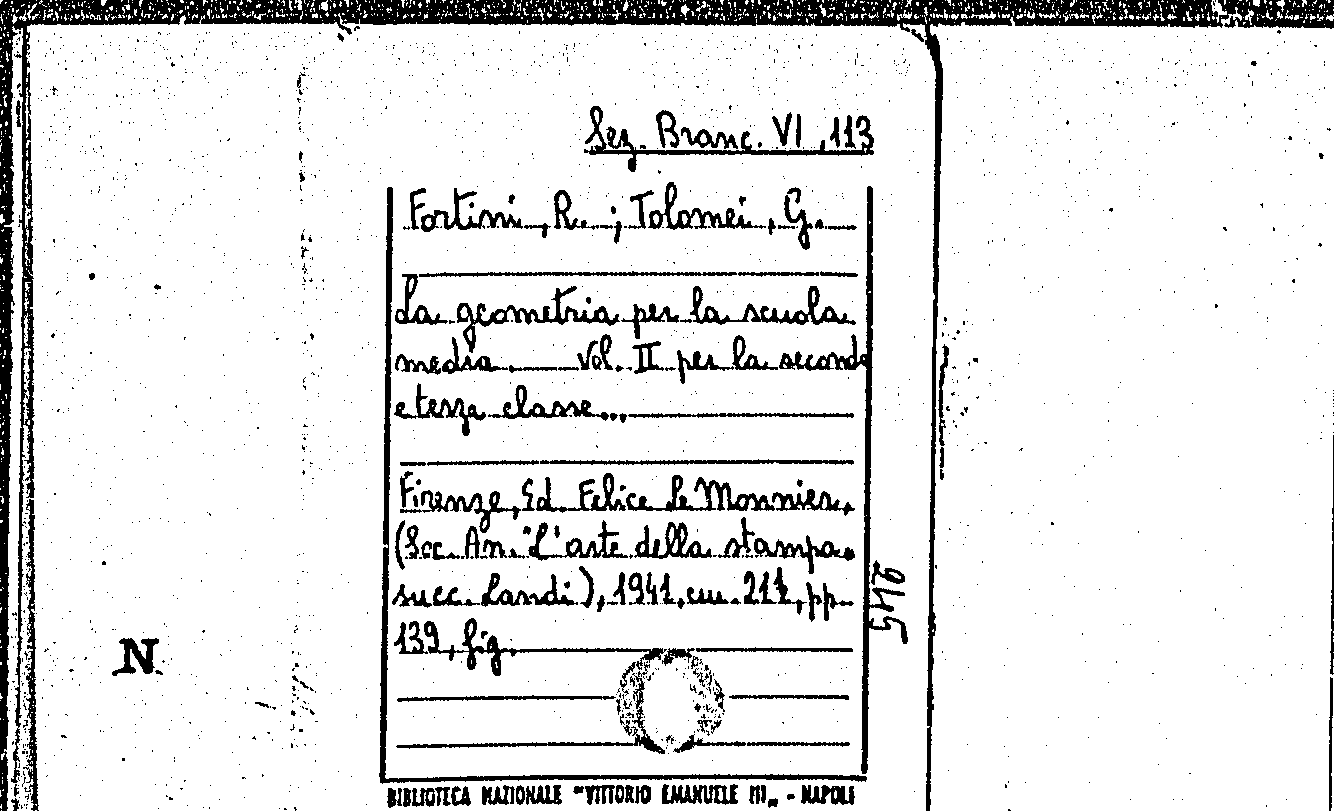 Sez. Branc. VI, 113
Fortini, R. ; Tolomei, G.
La geometria per la scuola
media. Vol. II per la seconda
e terza classe...
Firenze, Ed. Felice Le Monnier,
(Soc. An. "L'arte della stampa"
succ. Landi), 1941, cm. 21½, pp.
139, fig.
545
N
BIBLIOTECA NAZIONALE "VITTORIO EMANUELE III" - NAPOLI